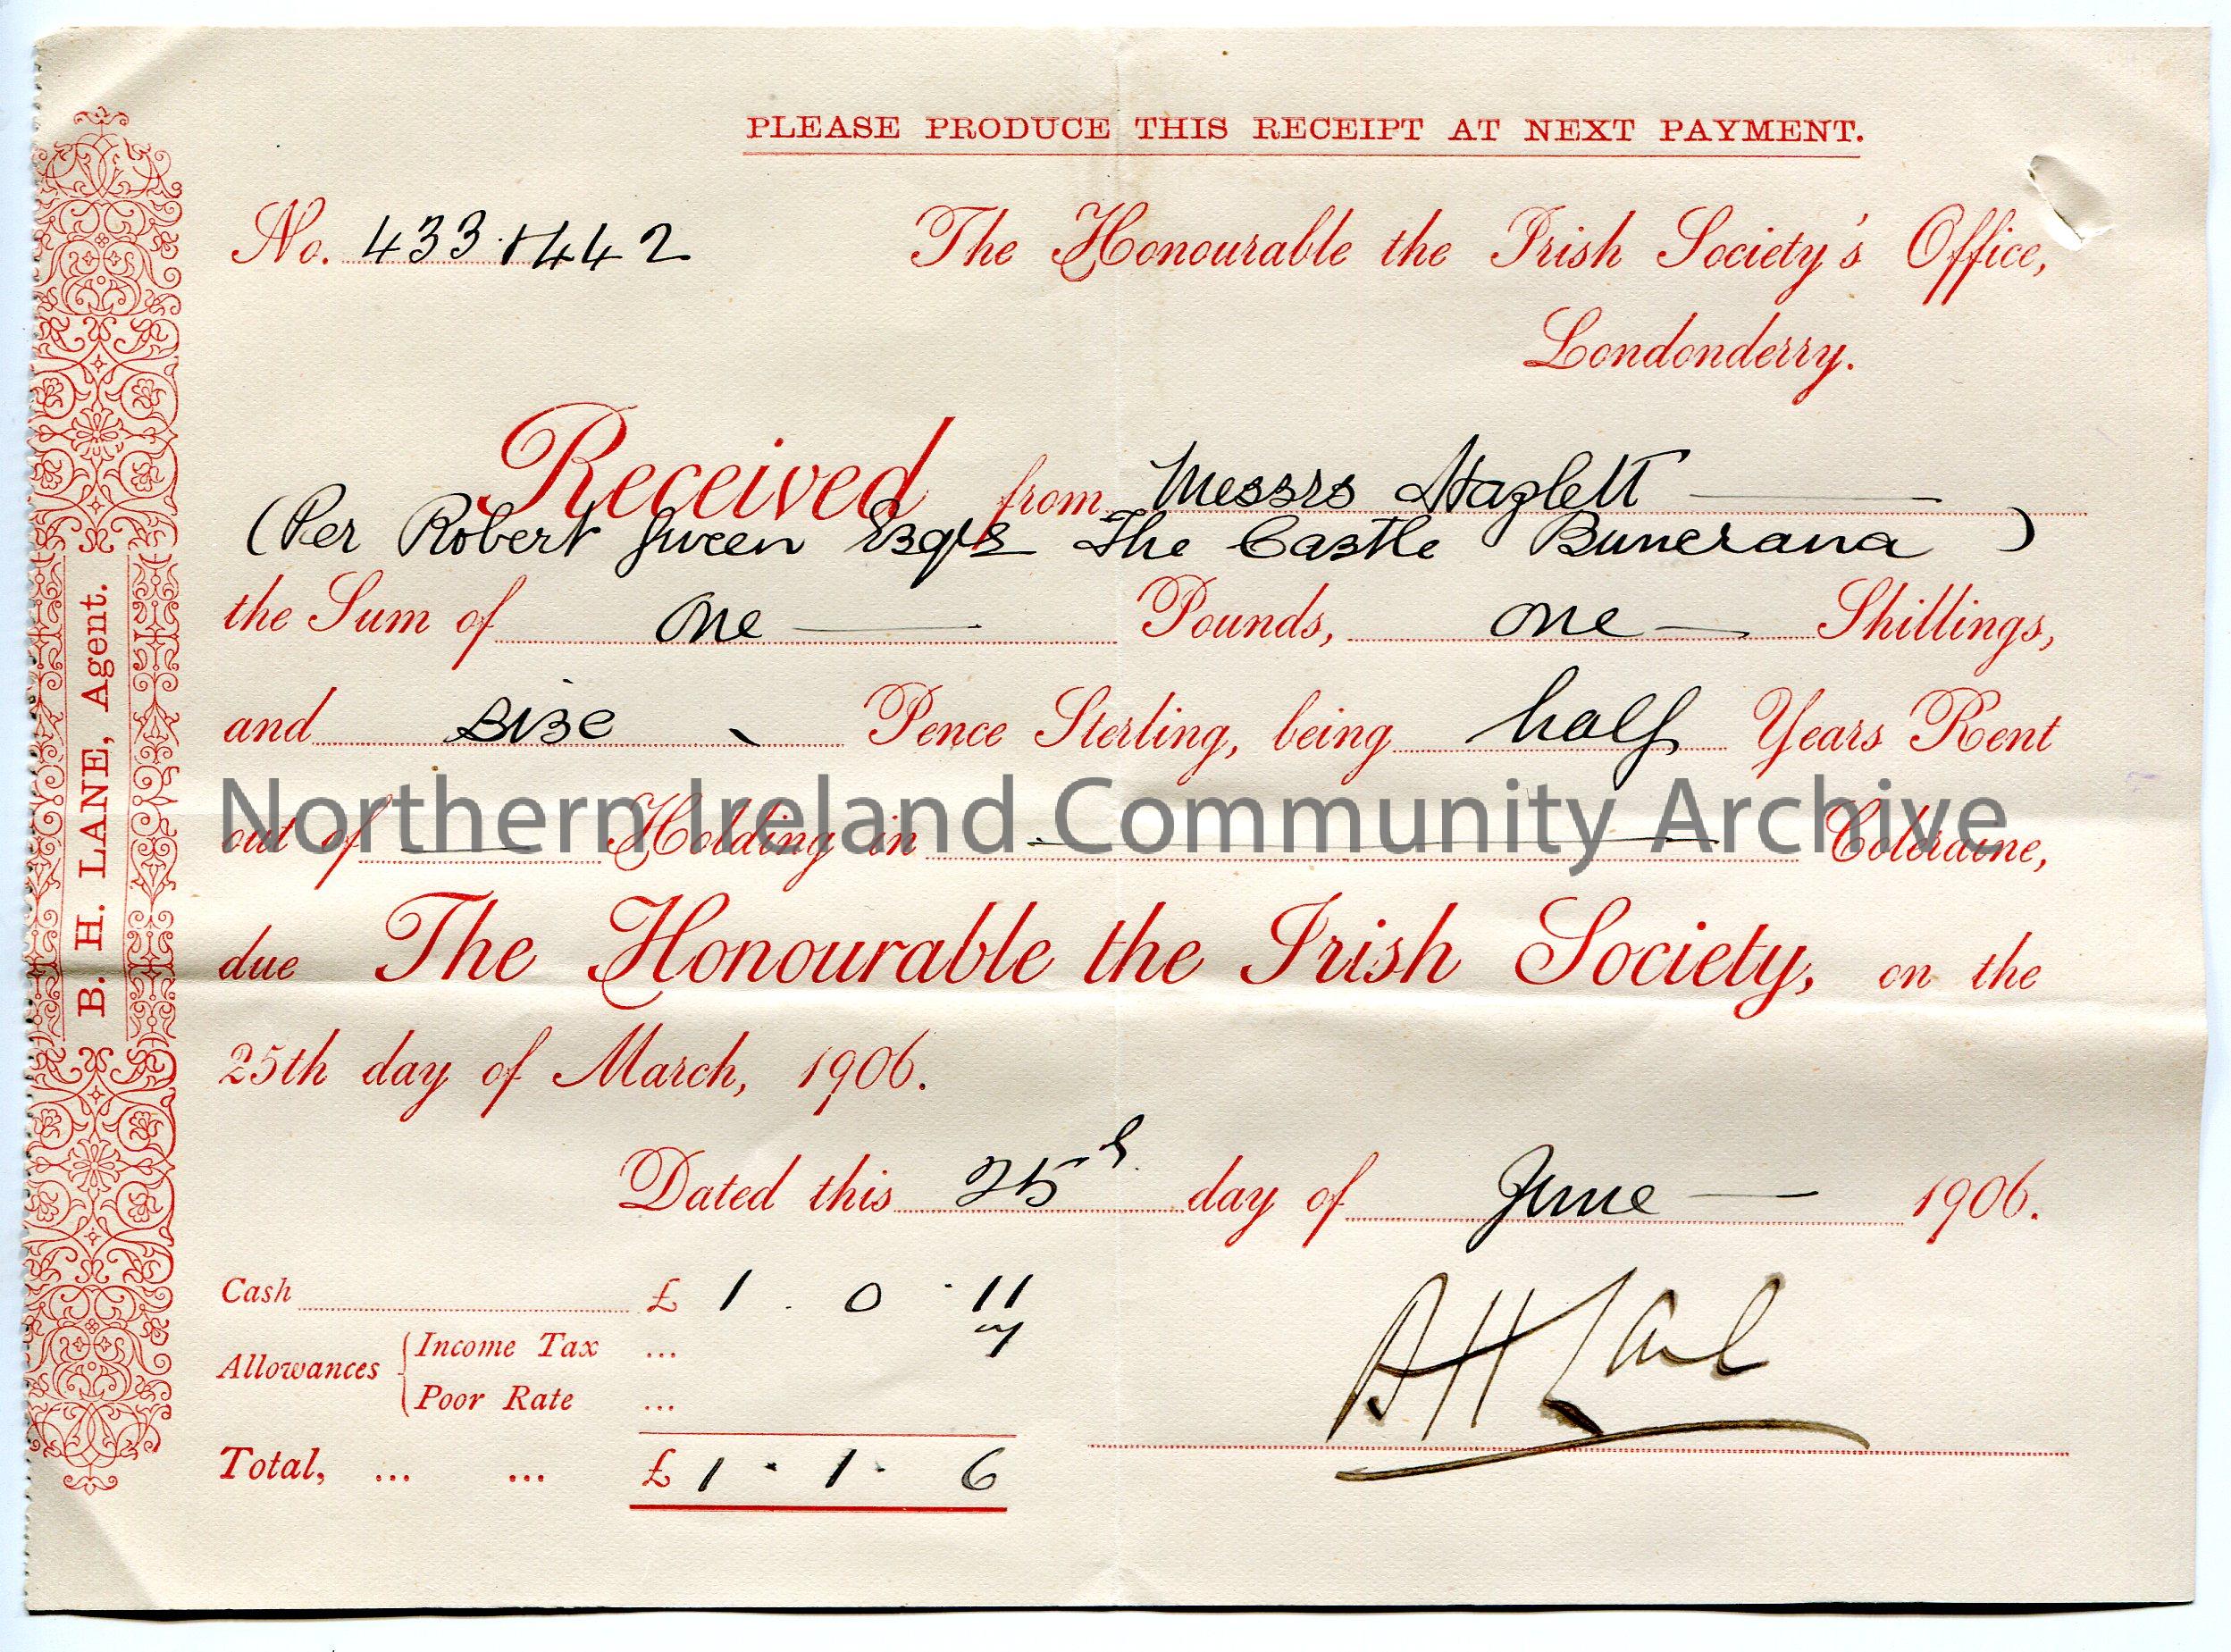 PLEASE PRODUCE THIS RECEIPT AT NEXT PAYMENT.
No. 433 + 442
The Honourable the Irish Society's Office,
Londonderry.
Received from Messrs Hazlett
(Per Robert Esqre The Castle Buncrana)
the Sum of One Pounds, one Shillings,
and Pence Sterling, being half Years Rent
out of Holding in Coleraine,
due The Honourable the Irish Society, on the
25th day of March, 1906.
Dated this 25th day of June 1906.
Cash £ 1 . 0 . 11
Allowances Income Tax ... 7
Poor Rate ...
Total, ... ... £ 1 . 1 . 6
B H Lane
B. H. LANE, Agent.
Northern Ireland Community Archive